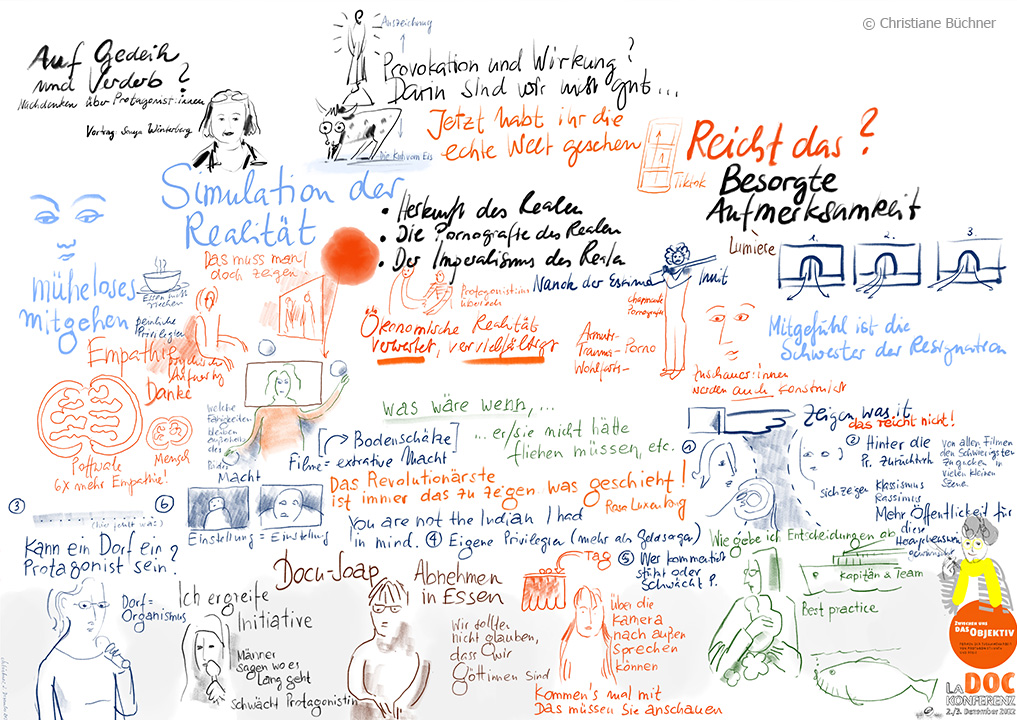 © Christiane Büchner
Auf Gedeih
und Verderb?
Nachdenken über Protagonist:innen
Vortrag Sonya Winterberg
Auszeichnung
Provokation und Wirkung?
Darin sind wir nicht gut...
Die Kuh vom Eis
Jetzt habt ihr die
echte Welt gesehen
Tiktok
Reicht das?
Besorgte
Aufmerksamkeit
Simulation der
Realität
• Herkunft des Realen
• Die Pornografie des Realen
• Der Imperalismus des Realen
müheloses
Mitgehen
Das muss man
doch zeigen
persönliche
Privilegien
Empathie
Danke
Pottwale
6x mehr Empathie!
Mensch
Protagonist:innen
Ökonomische Realität
verwertet, vervielfältigt
Nanok der Eskimo
Inuit
charmante
Pornografie
Armuts-
Trauma- Porno
Wohlfarts-
Lumière
1.
2.
3.
Mitgefühl ist die
Schwester der Resignation
Zuschauer:innen
werden auch konstruiert
welche
Fähigkeiten
bleiben
außerhalb
des
Bildes
Macht
was wäre wenn,...
...er/sie nicht hätte
fliehen müssen, etc.
[→ Bodenschätze]
Filme = extrative Macht
Zeigen, was ist
das reicht nicht!
①
② Hinter die
Pr. zurücktreten
sich zeigen
Klassismus
Rassismus
von allen Filmen
den Schwierigsten
Zugucken in
vielen kleinen
Szene.
Mehr Öffentlichkeit für
diese
Das Revolutionärste
ist immer das zu zeigen was geschieht!
Rosa Luxemburg
Einstellung = Einstellung
You are not the Indian I had
in mind.
④ Eigene Privilegien (mehr als Geldsorgen)
③
⑥
Kann ein Dorf ein
Protagonist sein?
Dorf =
Organismus
Ich ergreife
Initiative
Männer
sagen wo es
lang geht
schwächt Protagonistin
Docu-Soap
Abnehmen
in Essen
Wir sollten
nicht glauben,
dass wir
Gött:innen sind
Tag
⑤ Wer kommentiert
stützt oder
schwächt P.
über die
Kamera
nach außen
sprechen
können
Kommen's mal mit
Das müssen Sie anschauen
Wie gebe ich Entscheidungen ab
Kapitän & Team
Best practice
ZWISCHEN UNS
DAS OBJEKTIV
LA DOC
KONFERENZ
2./3. Dezember 2022